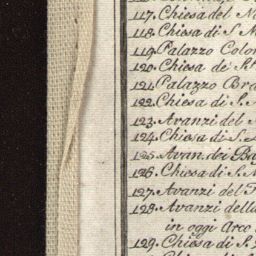 117. Chiesa del N
118. Chiesa di S. M
119. Palazzo Colon
120. Chiesa de S.
121. Palazzo Bra
122. Chiesa di S.
123. Avanzi del
124. Chiesa di S.
125. Avan. dei Ba
126. Chiesa di S. M
127. Avanzi del T
128. Avanzi della
in oggi Arco
129. Chiesa di S.